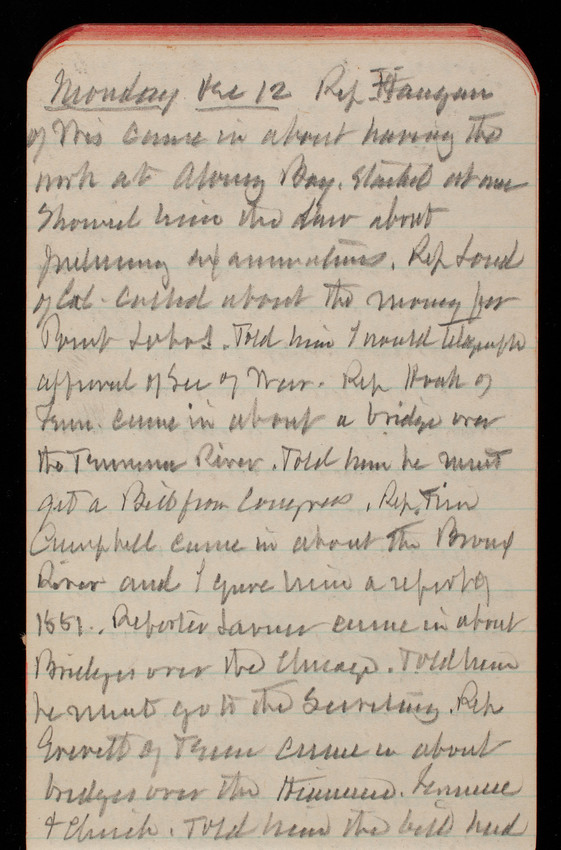 Monday Dec 12 Rep Haugen
of Wis came in about having the
work at Bay. Started at once
Showed him the law about
preliminary examinations. Rep Loud
of Cal. called about the money for
Point Lobos. Told him I would telegraph
approval of Sec of War. Rep Houk of
Tenn. came in about a bridge over
the Tennessee River. Told him he must
get a Bill from Congress. Rep. Tim
Campbell came in about the Bronx
River and I gave him a report of
1881. Reporter came in about
Bridges over the Chicago. Told him
he must go to the Secretary. Rep
Everett of Tenn came in about
bridges over the Hiwassee.
& Clinch. Told him the bill had